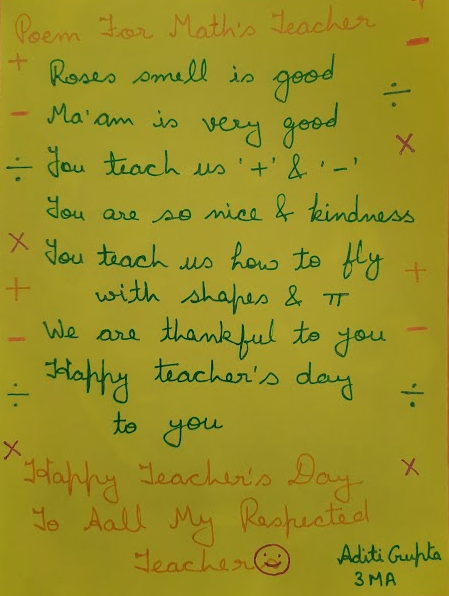 Poem For Math's Teacher
Roses smell is good
Ma'am is very good
You teach us '+' & '-'
You are so nice & kindness
You teach us how to fly
with shapes & π
We are thankful to you
Happy teacher's day
to you
Happy Teacher's Day
To Aall My Respected
Teachers
Aditi Gupta
3 MA